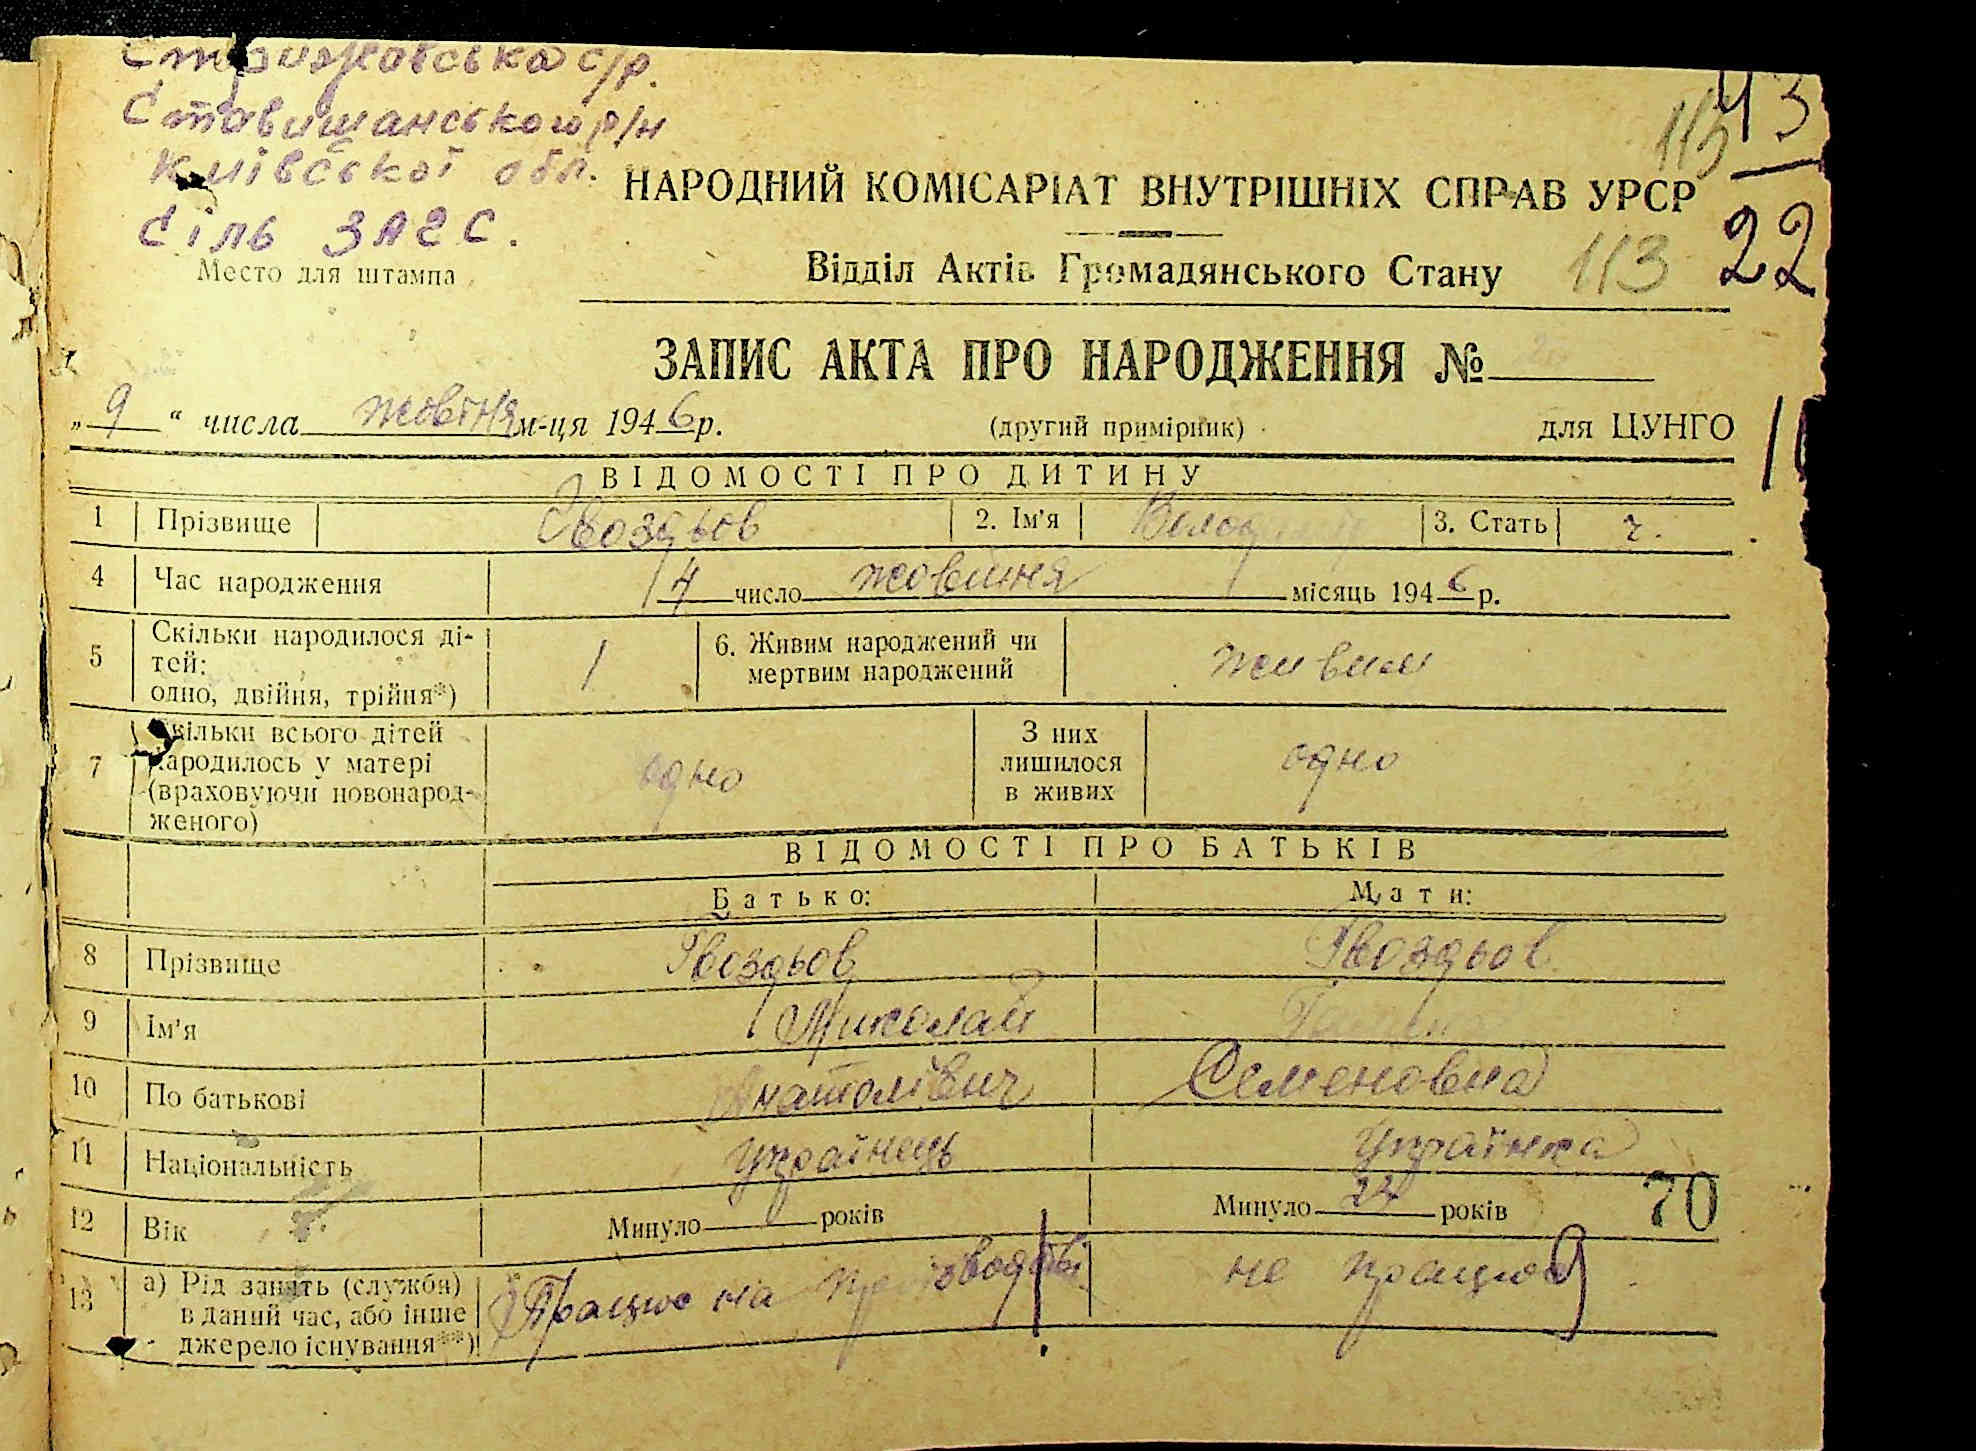 Стрижовська с/р.
Ставищанського р/н
Київської обл.
Сіль ЗАГС.
Место для штампа
113
43
НАРОДНИЙ КОМІСАРІАТ ВНУТРІШНІХ СПРАВ УРСР
22
Відділ Актів Громадянського Стану 113
ЗАПИС АКТА ПРО НАРОДЖЕННЯ №
„ 9 “ числа жовтня м-ця 1946 р. (другий примірник) для ЦУНГО
ВІДОМОСТІ ПРО ДИТИНУ
1 Прізвище Гвоздьов 2. Ім'я Володимир 3. Стать ч.
4 Час народження 4 число жовтня місяць 1946 р.
5 Скільки народилося ді-
тей:
одно, двійня, трійня*) 1 6. Живим народжений чи
мертвим народжений живим
7 Скільки всього дітей
народилось у матері
(враховуючи новонарод-
женого) одно З них
лишилося
в живих одно
ВІДОМОСТІ ПРО БАТЬКІВ
Батько: Мати:
8 Прізвище Гвоздьов Гвоздьов
9 Ім'я Миколай
10 По батькові Анатолівич Семеновна
11 Національність Українець Українка
12 Вік Минуло років Минуло 24 років 70
13 а) Рід занять (служби)
в даний час, або інше
джерело існування**) Працює на не працює